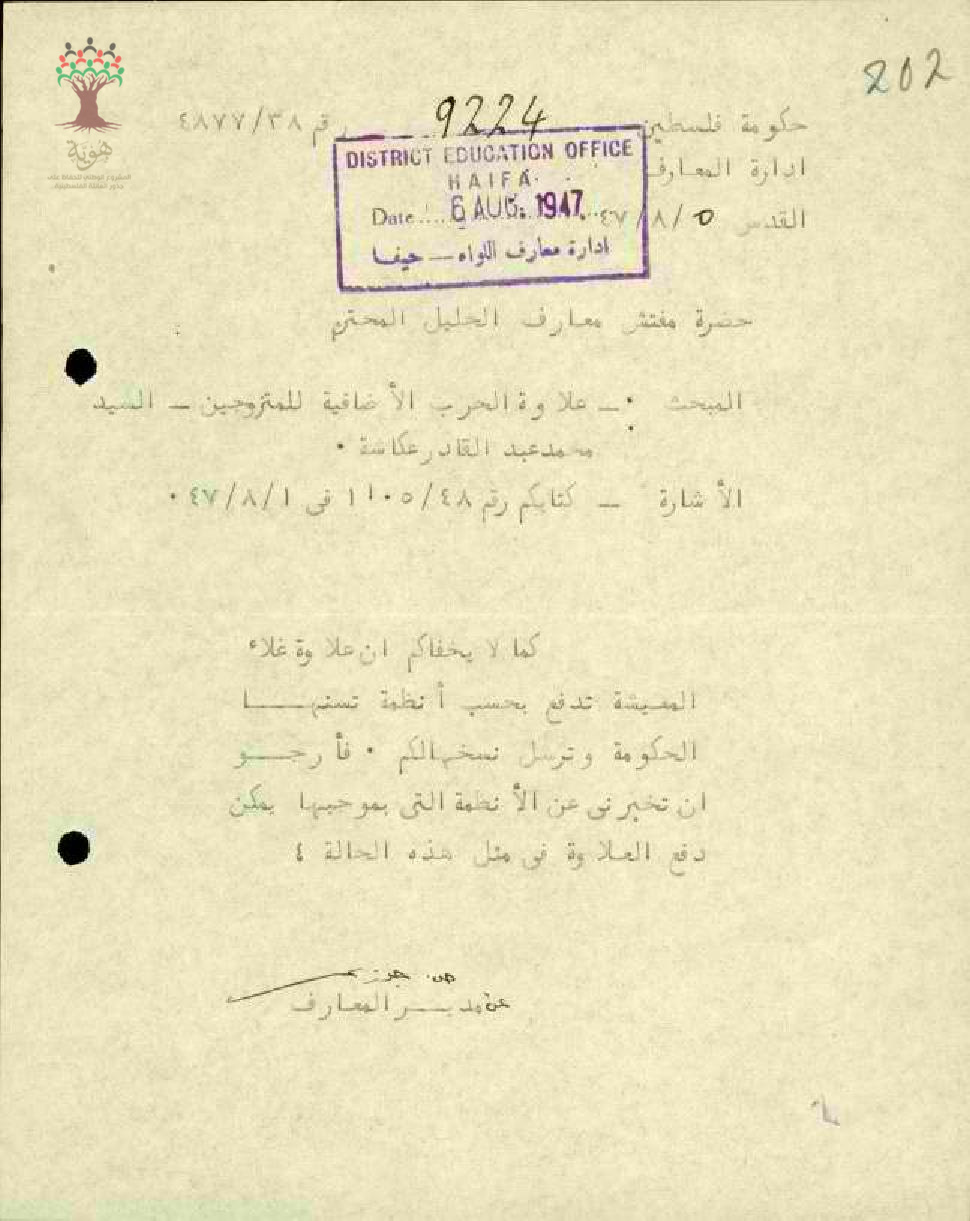 202
حكومة فلسطين
رقم ٤٨٧٧/٣٨
9224
ادارة المعارف
القدس ٤٧/٨/٥
DISTRICT EDUCATION OFFICE
HAIFA
Date 6 AUG. 1947
ادارة معارف اللواء — حيفا
هوية
حضرة مفتش معارف الخليل المحترم
المبحث :— علاوة الحرب الأضافية للمتزوجين — السيد
محمد عبد القادر عكاشة .
الأشارة — كتابكم رقم ١١٠٥/٤٨ في ٤٧/٨/١ .
كما لا يخفاكم ان علاوة غلاء
المعيشة تدفع بحسب أنظمة تسنهـــا
الحكومة وترسل نسخها لكم . فأرجــو
ان تخبرني عن الأنظمة التي بموجبها يمكن
دفع العلاوة في مثل هذه الحالة ؟
عن مديـــر المعارف